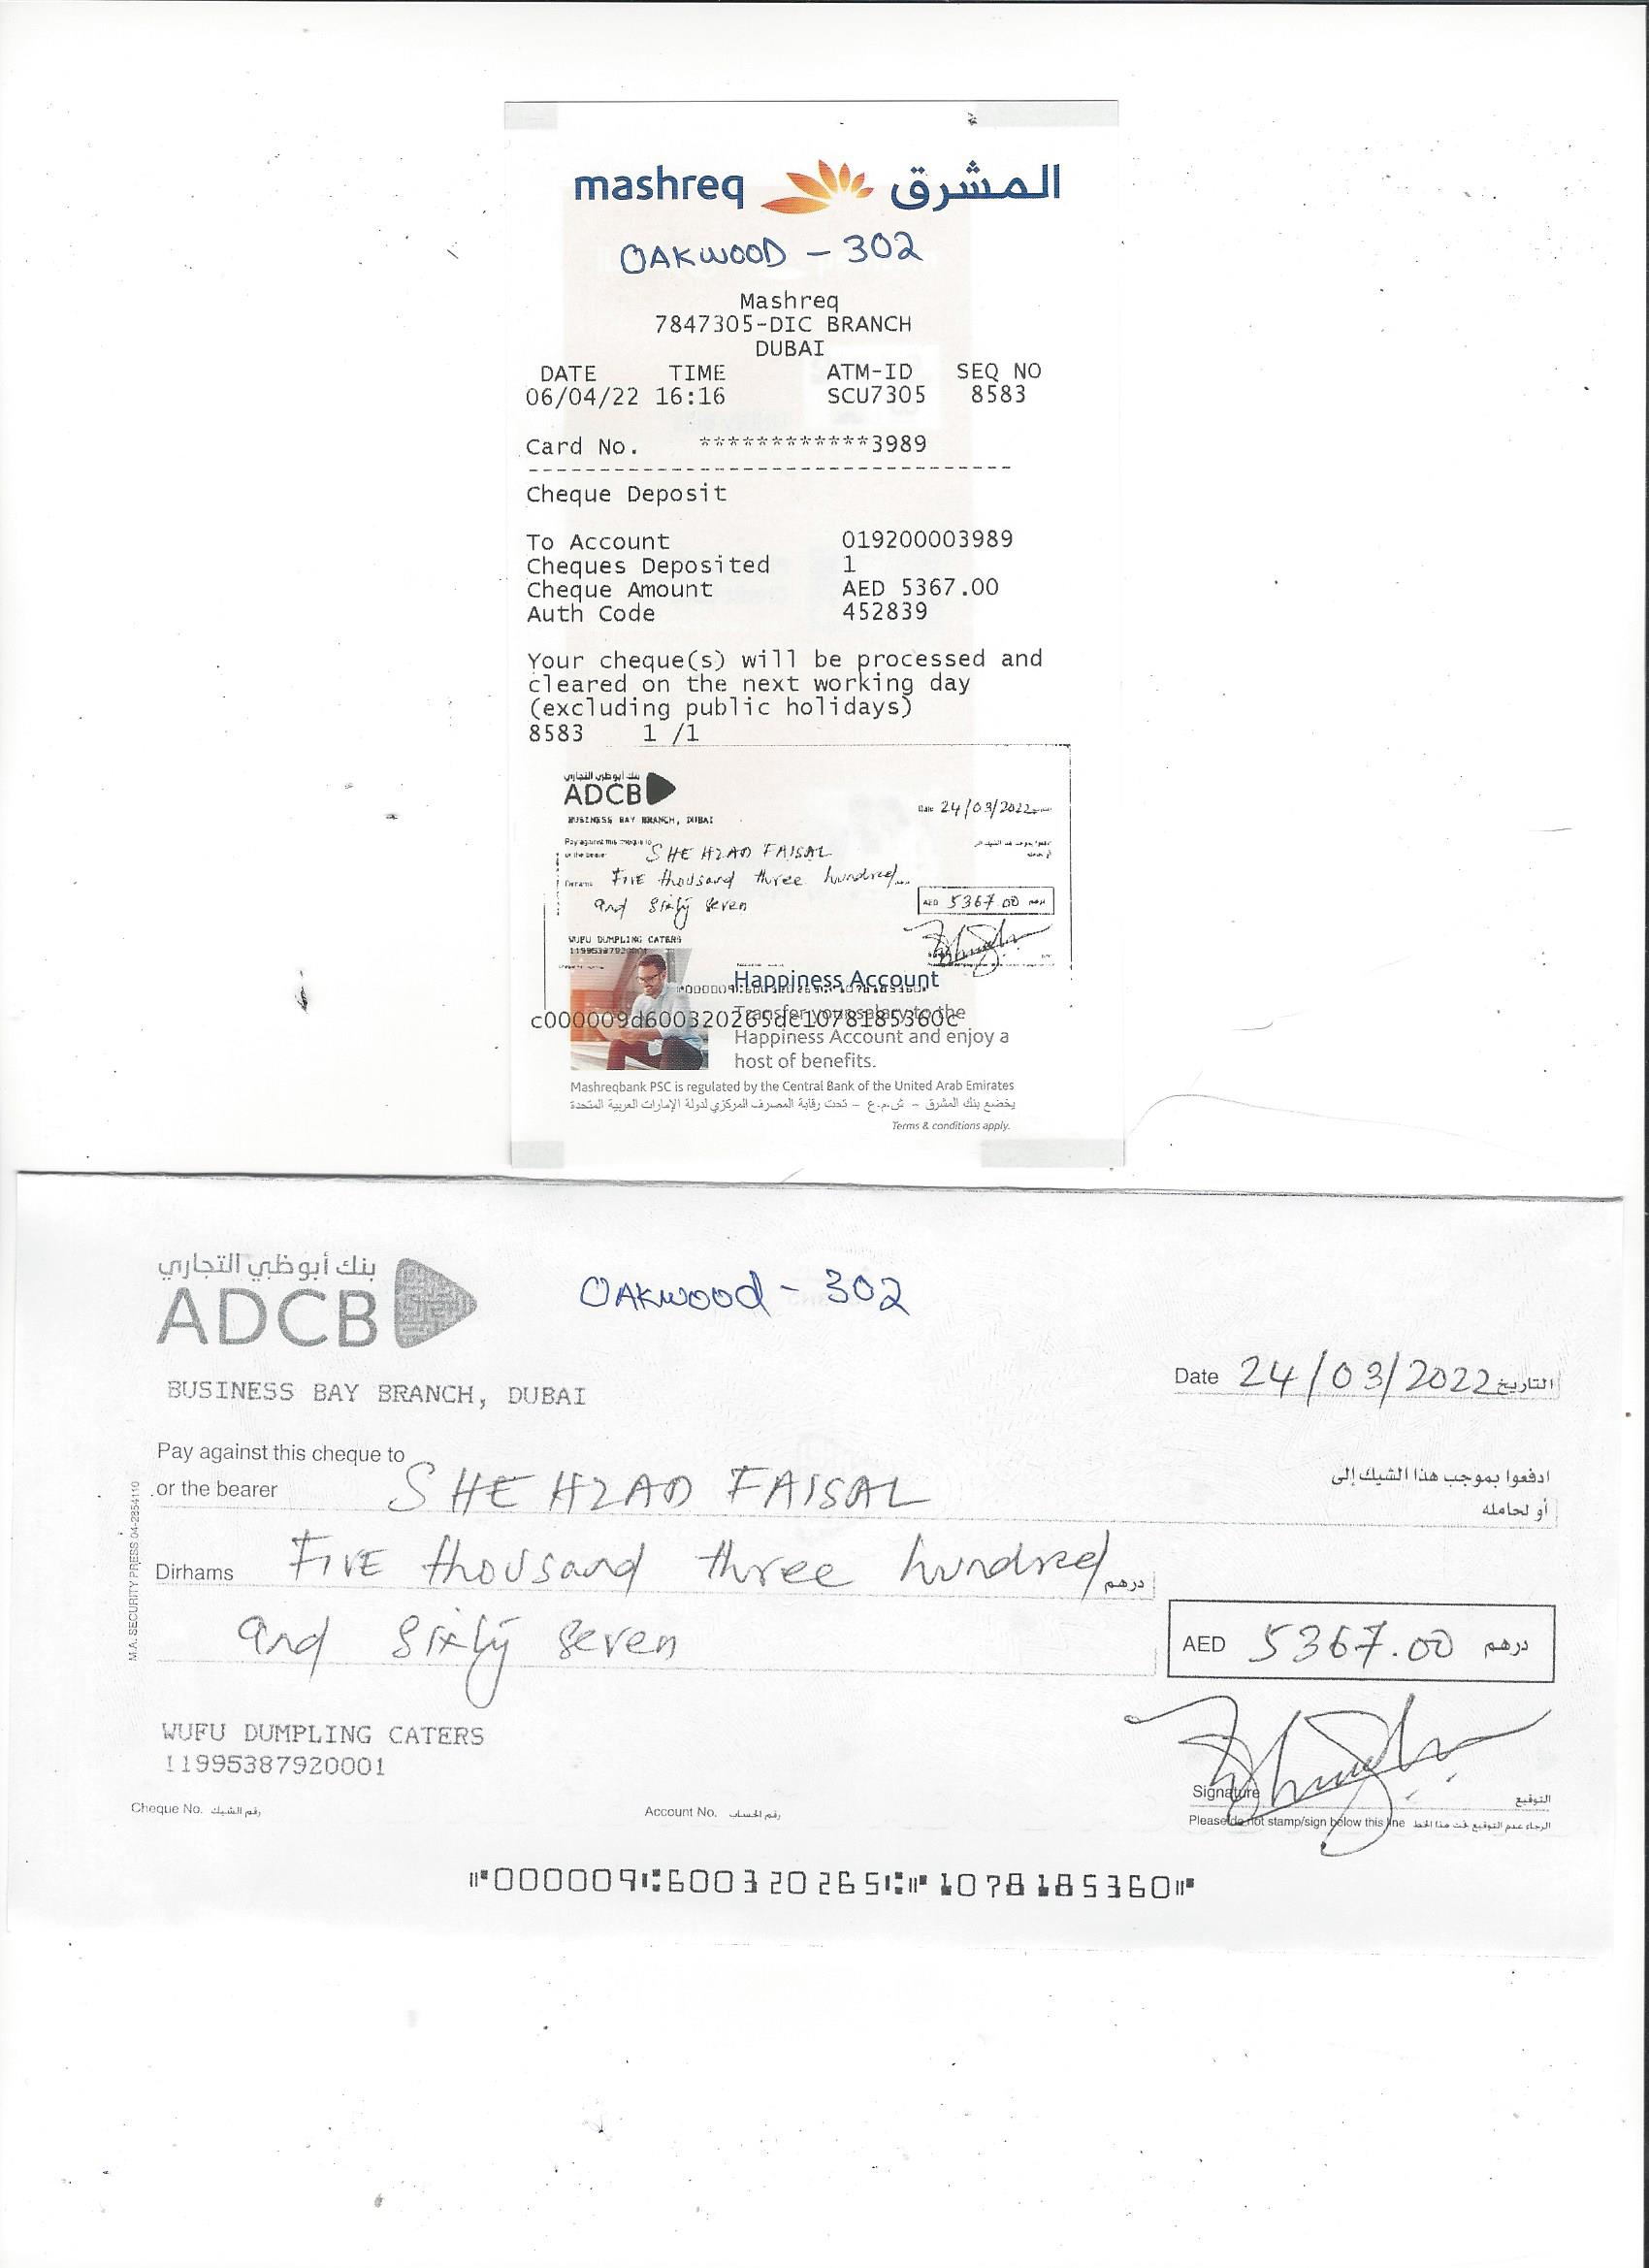 mashreq المشرق
OAKWOOD - 302
Mashreq
7847305-DIC BRANCH
DUBAI
DATE TIME ATM-ID SEQ NO
06/04/22 16:16 SCU7305 8583
Card No. ************3989
Cheque Deposit
To Account 019200003989
Cheques Deposited 1
Cheque Amount AED 5367.00
Auth Code 452839
Your cheque(s) will be processed and
cleared on the next working day
(excluding public holidays)
8583 1 /1
بنك أبوظبي التجاري
ADCB
BUSINESS BAY BRANCH, DUBAI
Date 24/03/2022
Pay against this cheque to
or the bearer SHEHZAD FAISAL
Dirhams FIVE thousand three hundred
and sixty seven
AED 5367.00 درهم
WUFU DUMPLING CATERS
11995387920001
Happiness Account
c000009d600320265dc1078185360c
Transfer your salary to the
Happiness Account and enjoy a
host of benefits.
Mashreqbank PSC is regulated by the Central Bank of the United Arab Emirates
يخضع بنك المشرق - ش.م.ع - تحت رقابة المصرف المركزي لدولة الإمارات العربية المتحدة
Terms & conditions apply.
بنك أبوظبي التجاري
ADCB
OAKWOOD - 302
BUSINESS BAY BRANCH, DUBAI
Date 24/03/2022 التاريخ
Pay against this cheque to ادفعوا بموجب هذا الشيك إلى
or the bearer SHEHZAD FAISAL أو لحامله
Dirhams FIVE thousand three hundred درهم
and sixty seven
AED 5367.00 درهم
M.A. SECURITY PRESS 04-2854110
WUFU DUMPLING CATERS
11995387920001
Signature التوقيع
Cheque No. رقم الشيك Account No. رقم الحساب
Please do not stamp/sign below this line الرجاء عدم التوقيع تحت هذا الخط
⑈000009⑆600320265⑆⑈1078185360⑈